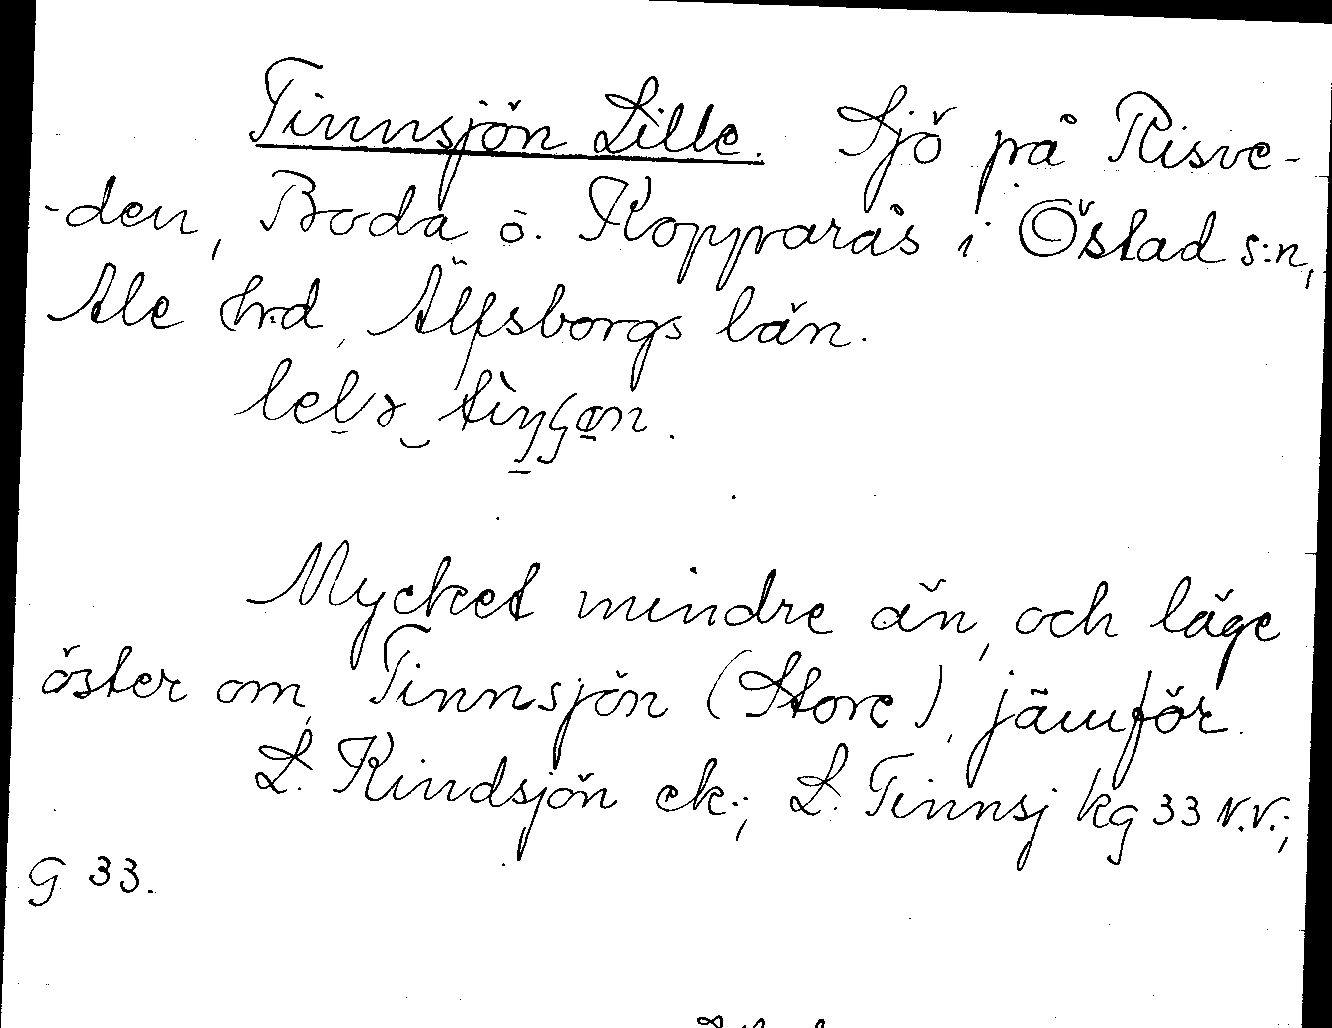 Tinnsjön Lille. Sjö på Risve-
-den, Boda ö. Kopparås i Östad s:n,
Ale hrd, Älfsborgs län.
Mycket mindre än, och läge
öster om, Tinnsjön (Store), jämför
L. Kindsjön ek.; L. Tinnsj kg 33 N.V.;
G 33.